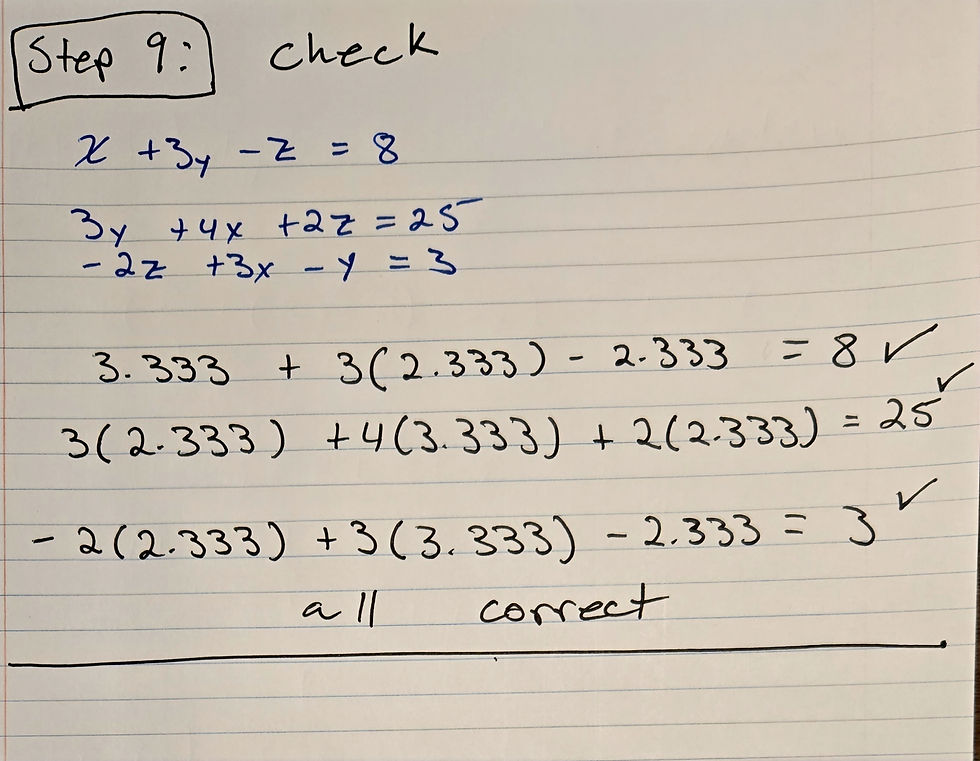 Step 9: check
x + 3y - z = 8
3y + 4x + 2z = 25
- 2z + 3x - y = 3
3.333 + 3(2.333) - 2.333 = 8 ✓
3(2.333) + 4(3.333) + 2(2.333) = 25 ✓
- 2(2.333) + 3(3.333) - 2.333 = 3 ✓
all correct